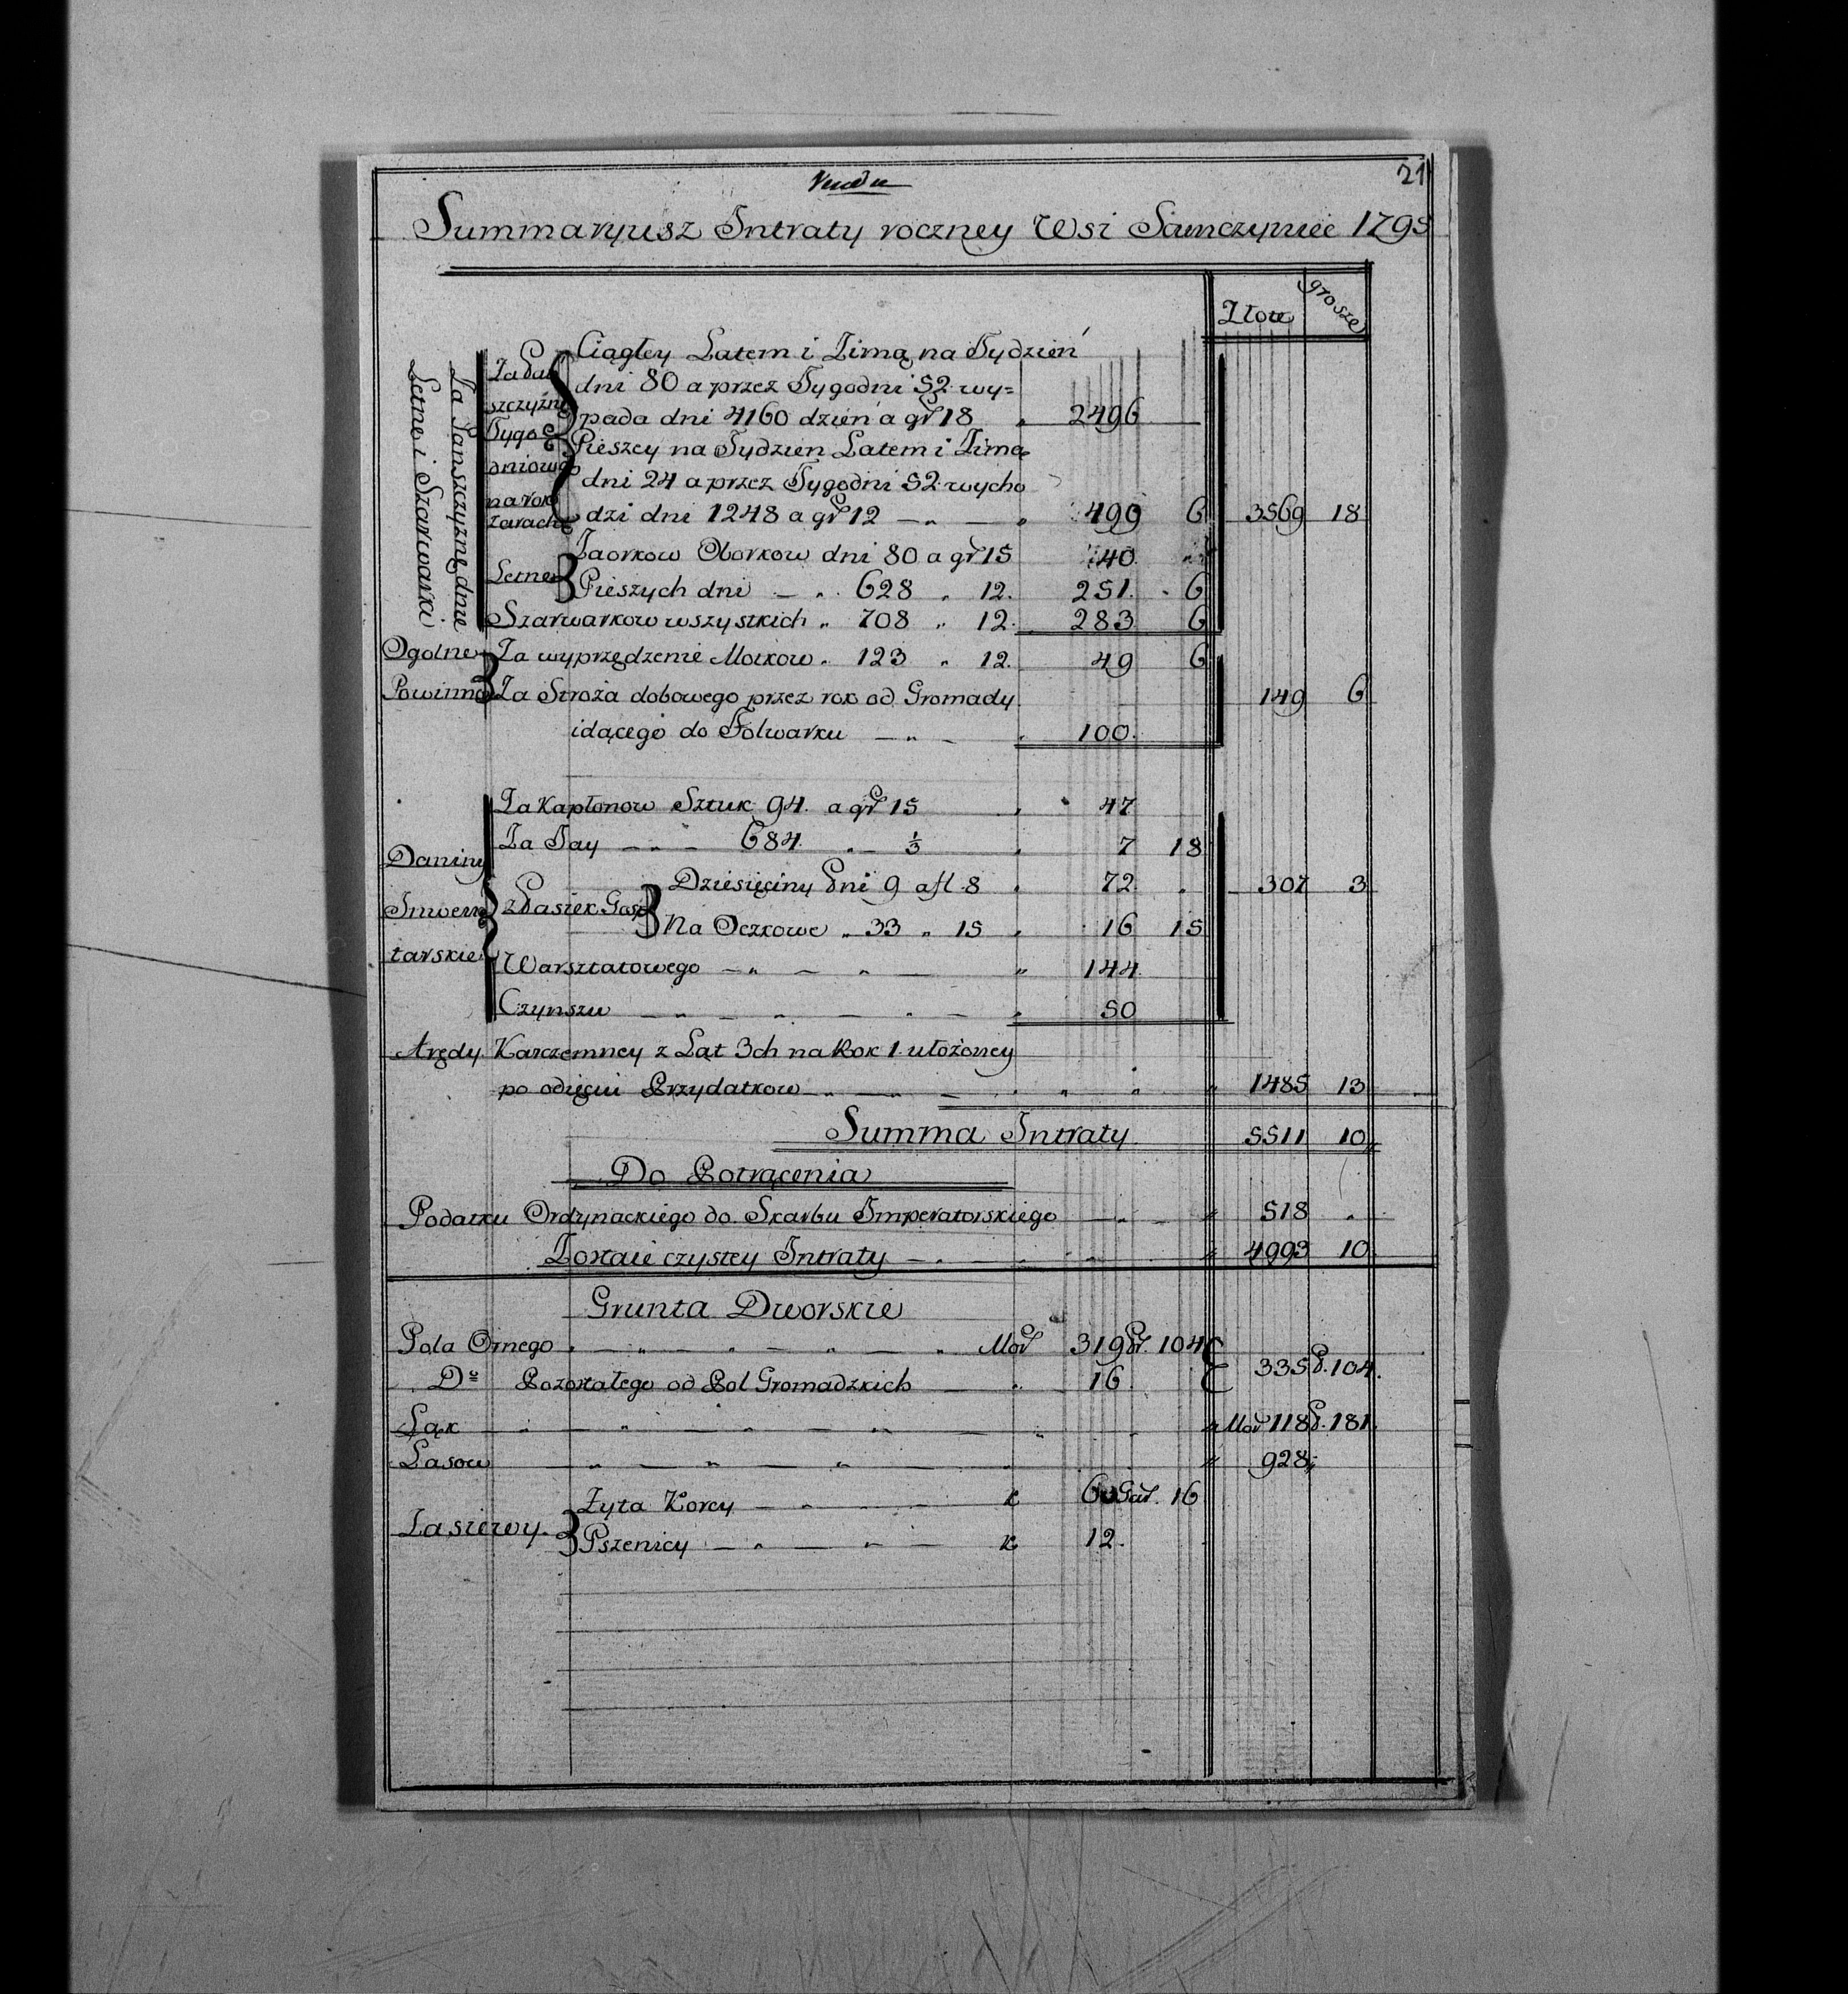 21
Summaryusz Intraty roczney Wsi 1795
Złote grosze
Za Pańszczyznę dnie
Letne i Szarwarki
Za Pań
szczyzn
Tygo
dniowo
na rok
zarach
Ciągłey Latem i Zimą na Tydzień
dni 80 a przez Tygodni 52 wy=
pada dni 4160 dzień a gr 18 " 2496
Pieszey na Tydzien Latem i Zimą
dni 24 a przez Tygodni 52 wycho
dzi dni 1248 a gr 12 — " — " 499 6 3569 18
Letne
Zaorkow Oborkow dni 80 a gr 15 40 "
Pieszych dni — " 628 " 12. 251. 6
Szarwarkow wszystkich " 708 " 12. 283 6
Ogolne
Powinno
Za wyprzędzenie Motkow " 123 " 12. 49 6
Za Stroża dobowego przez rok od Gromady 149 6
idącego do Folwarku — " — 100.
Daniny
Inwen
tarskie
Za Kapłonow Sztuk 94. a gr 15 " 47
Za Jay — " — 684. " — 1/3 " 7 18
Z Pasiek Gos
Dziesięciny Pni 9 a fl 8 " 72 " 307 3
Na Oczkowe " 33 " 15 " 16 15
Warsztatowego — " — " — " 144.
Czynszu — " — " — " — " 50
Arędy Karczemney z Lat 3ch na Rok 1. ułożoney
po odięciu Przydatkow — " — " — " " " 1485 13
Summa Intraty 5511 10
Do Potrącenia
Podatku Ordynackiego do Skarbu Imperatorskiego — " — " 518 "
Zostaie czystey Intraty — " — " 4993 10
Grunta Dworskie
Pola Ornego " — " — " — " — " Mor 319 Pr. 104
335 P. 104.
Do Pozostałego od Pol Gromadzkich — " 16
Łąk — " — " — " — " — " " " Mor 118 P. 181.
Lasow — " — " — " — " " 928 "
Zasiewy
Żyta Korcy — " — " — K 60 Gar. 16
Pszenicy — " — " — K 12.